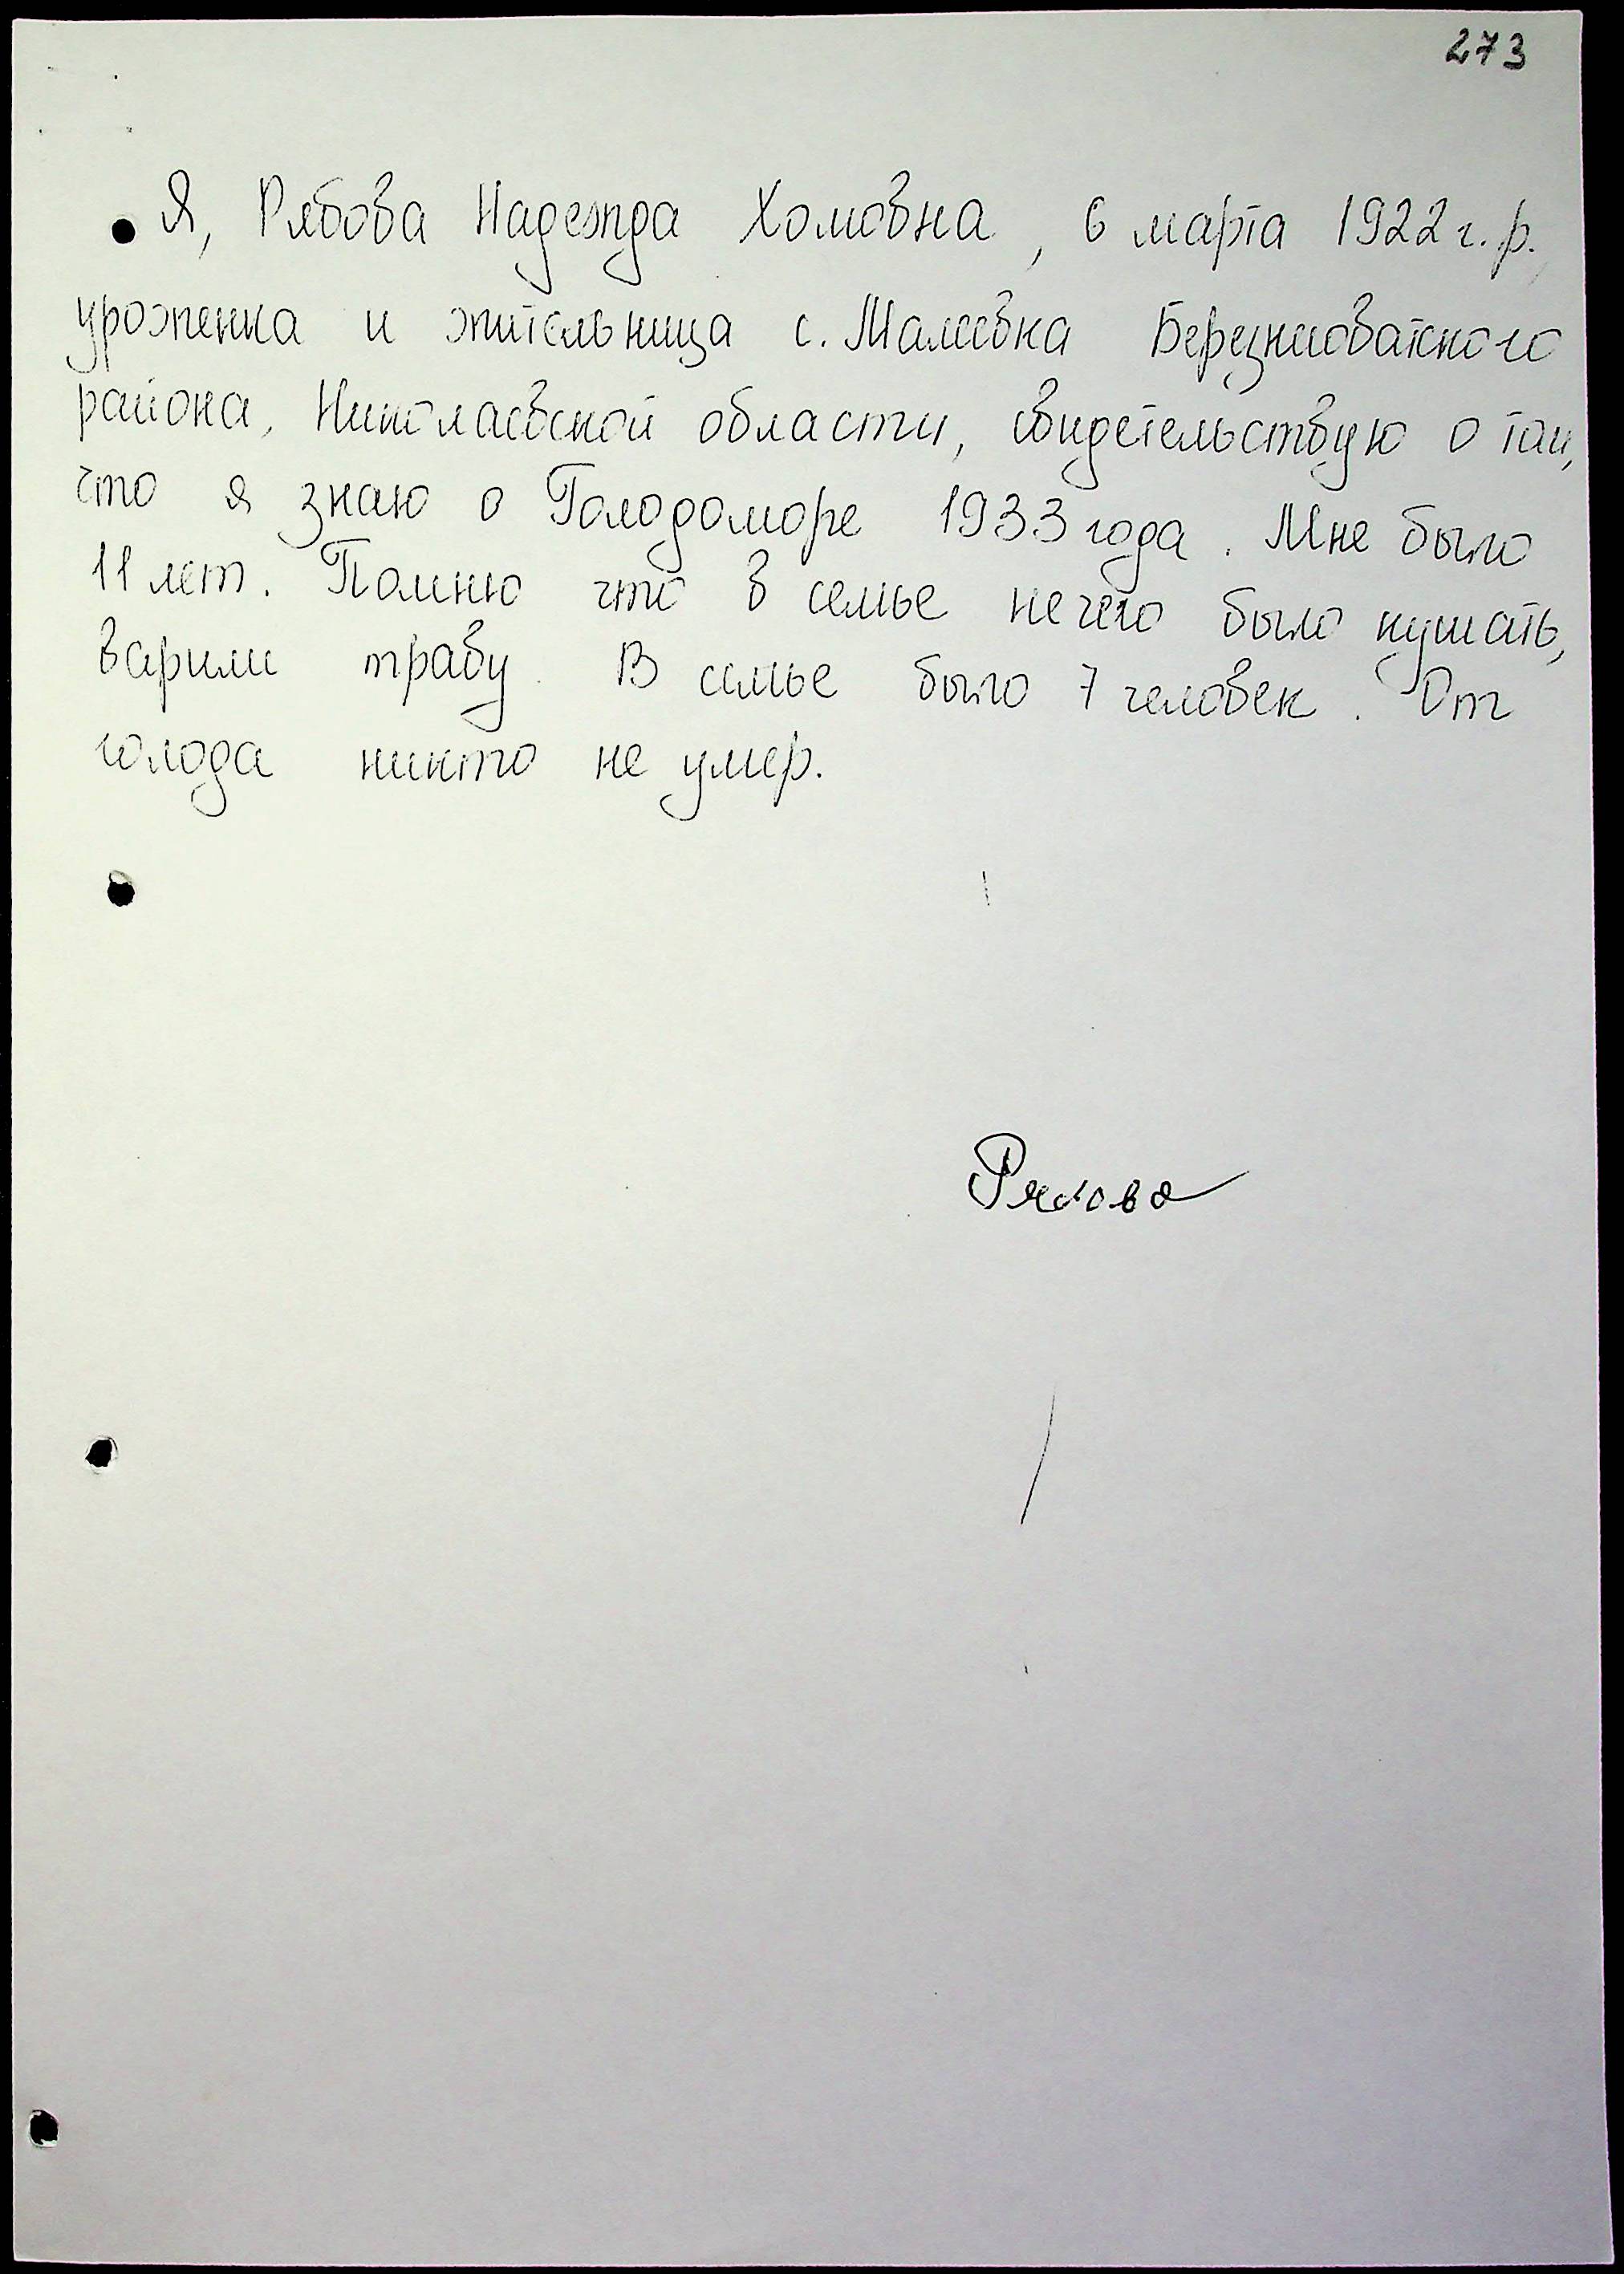 273
Я, Рябова Надежда Хомовна, 6 марта 1922 г. р.
уроженка и жительница с. Малеевка Березниоватского
района, Николаевской области, свидетельствую о том,
что я знаю о Голодоморе 1933 года. Мне было
11 лет. Помню что в семье нечего было кушать,
варили траву. В семье было 7 человек. От
голода никто не умер.
Рябова